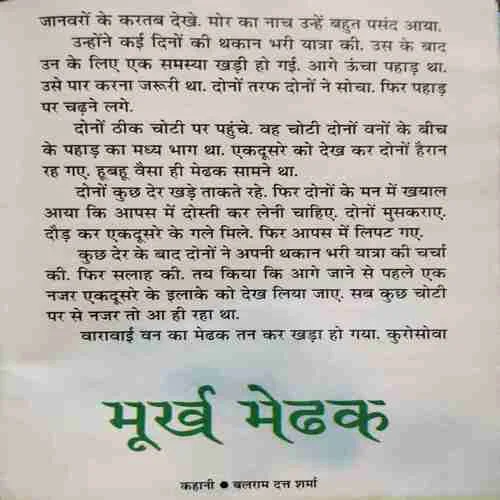 जानवरों के करतब देखे. मोर का नाच उन्हें बहुत पसंद आया.
उन्होंने कई दिनों की थकान भरी यात्रा की. उस के बाद
उन के लिए एक समस्या खड़ी हो गई. आगे ऊंचा पहाड़ था.
उसे पार करना जरूरी था. दोनों तरफ दोनों ने सोचा. फिर पहाड़
पर चढ़ने लगे.
दोनों ठीक चोटी पर पहुंचे. वह चोटी दोनों वनों के बीच
के पहाड़ का मध्य भाग था. एकदूसरे को देख कर दोनों हैरान
रह गए. हूबहू वैसा ही मेढक सामने था.
दोनों कुछ देर खड़े ताकते रहे. फिर दोनों के मन में खयाल
आया कि आपस में दोस्ती कर लेनी चाहिए. दोनों मुसकराए.
दौड़ कर एकदूसरे के गले मिले. फिर आपस में लिपट गए.
कुछ देर के बाद दोनों ने अपनी थकान भरी यात्रा की चर्चा
की. फिर सलाह की. तय किया कि आगे जाने से पहले एक
नजर एकदूसरे के इलाके को देख लिया जाए. सब कुछ चोटी
पर से नजर तो आ ही रहा था.
वाराबाई वन का मेढक तन कर खड़ा हो गया. कुरोसोवा
मूर्ख मेढक
कहानी ● बलराम दत्त शर्मा